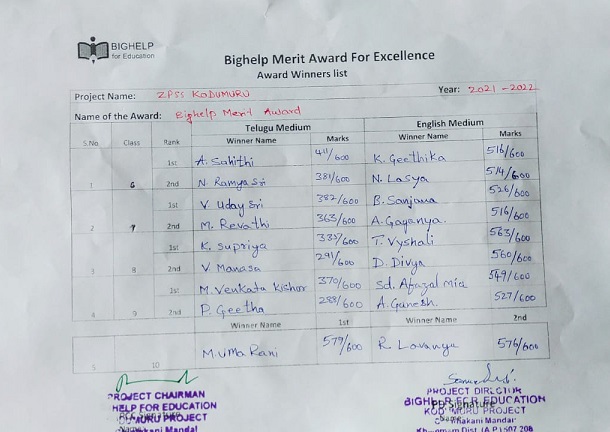 BIGHELP
for Education
Bighelp Merit Award For Excellence
Award Winners list
Project Name: ZPSS KODUMURU Year: 2021-2022
Name of the Award: Bighelp Merit Award
Telugu Medium English Medium
S.No Class Rank Winner Name Marks Winner Name Marks
1st A. Sahithi 411/600 K. Geethika 516/600
1 6 2nd N. Ramya Sri 381/600 N. Lasya 514/600
1st V. Uday Sri 382/600 B. Sanjana 526/600
2 7 2nd M. Revathi 363/600 A. Gaganya. 516/600
1st K. Supriya 335/600 T. Vyshali 563/600
3 8 2nd V. Manasa 291/600 D. Divya 560/600
1st M. Venkata Kishor 370/600 Sd. Afazal mia 549/600
4 9 2nd P. Geetha 288/600 A. Ganesh 527/600
Winner Name 1st Winner Name 2nd
5 10 M. UMA Rani 579/600 R. Lavanya 576/600
PROJECT CHAIRMAN PROJECT DIRECTOR
HELP FOR EDUCATION BIGHELP FOR EDUCATION
KODUMURU PROJECT Signature
Name
Mandal Mandal